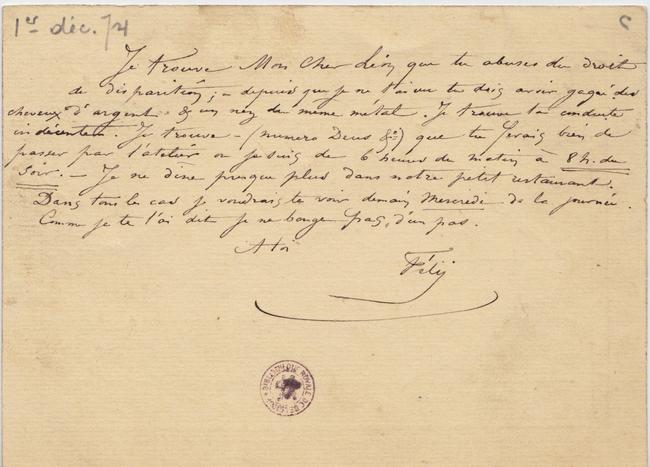 1er déc. 74
C
Je trouve Mon Cher Léon que tu abuses du droit
de disparition; – depuis que je ne t'ai vu tu dois avoir gagné des
cheveux d'argent & un nez du même métal. Je trouve ta conduite
indécente. Je trouve – (numero Deus &a) que tu ferais bien de
passer par l'atelier où je suis de 6 heures du matin à 8 h. du
soir. – Je ne dine presque plus dans notre petit restaurant.
Dans tous les cas je voudrais te voir demain Mercredi de la journée.
Comme je te l'ai dit je ne bouge pas, d'un pas.
A toi
Fély
BIBLIOTHÈQUE ROYALE DE BELGIQUE